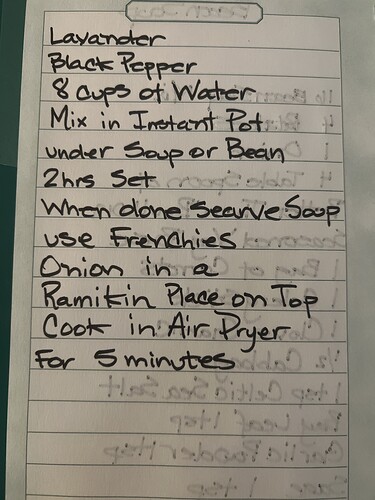 Lavander
Black Pepper
8 cups of Water
Mix in Instant Pot
under Soup or Bean
2hrs Set
When done searve Soup
use Frenchies
Onion in a
Ramikin Place on Top
Cook in Air Pryer
For 5 minutes